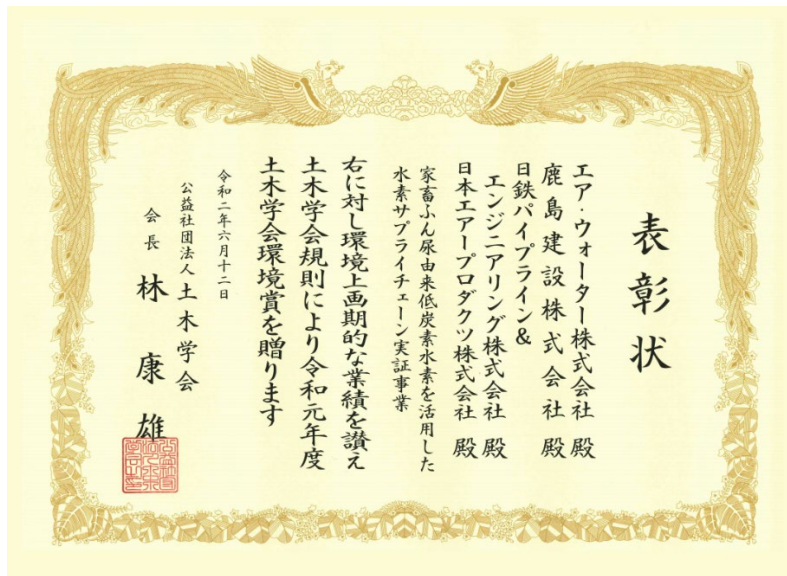 表彰状
エア・ウォーター株式会社 殿
鹿島建設株式会社 殿
日鉄パイプライン&
エンジニアリング株式会社 殿
日本エアープロダクツ株式会社 殿
家畜ふん尿由来低炭素水素を活用した
水素サプライチェーン実証事業
右に対し環境上画期的な業績を讃え
土木学会規則により令和元年度
土木学会環境賞を贈ります
令和二年六月十二日
公益社団法人 土木学会
会長 林 康雄